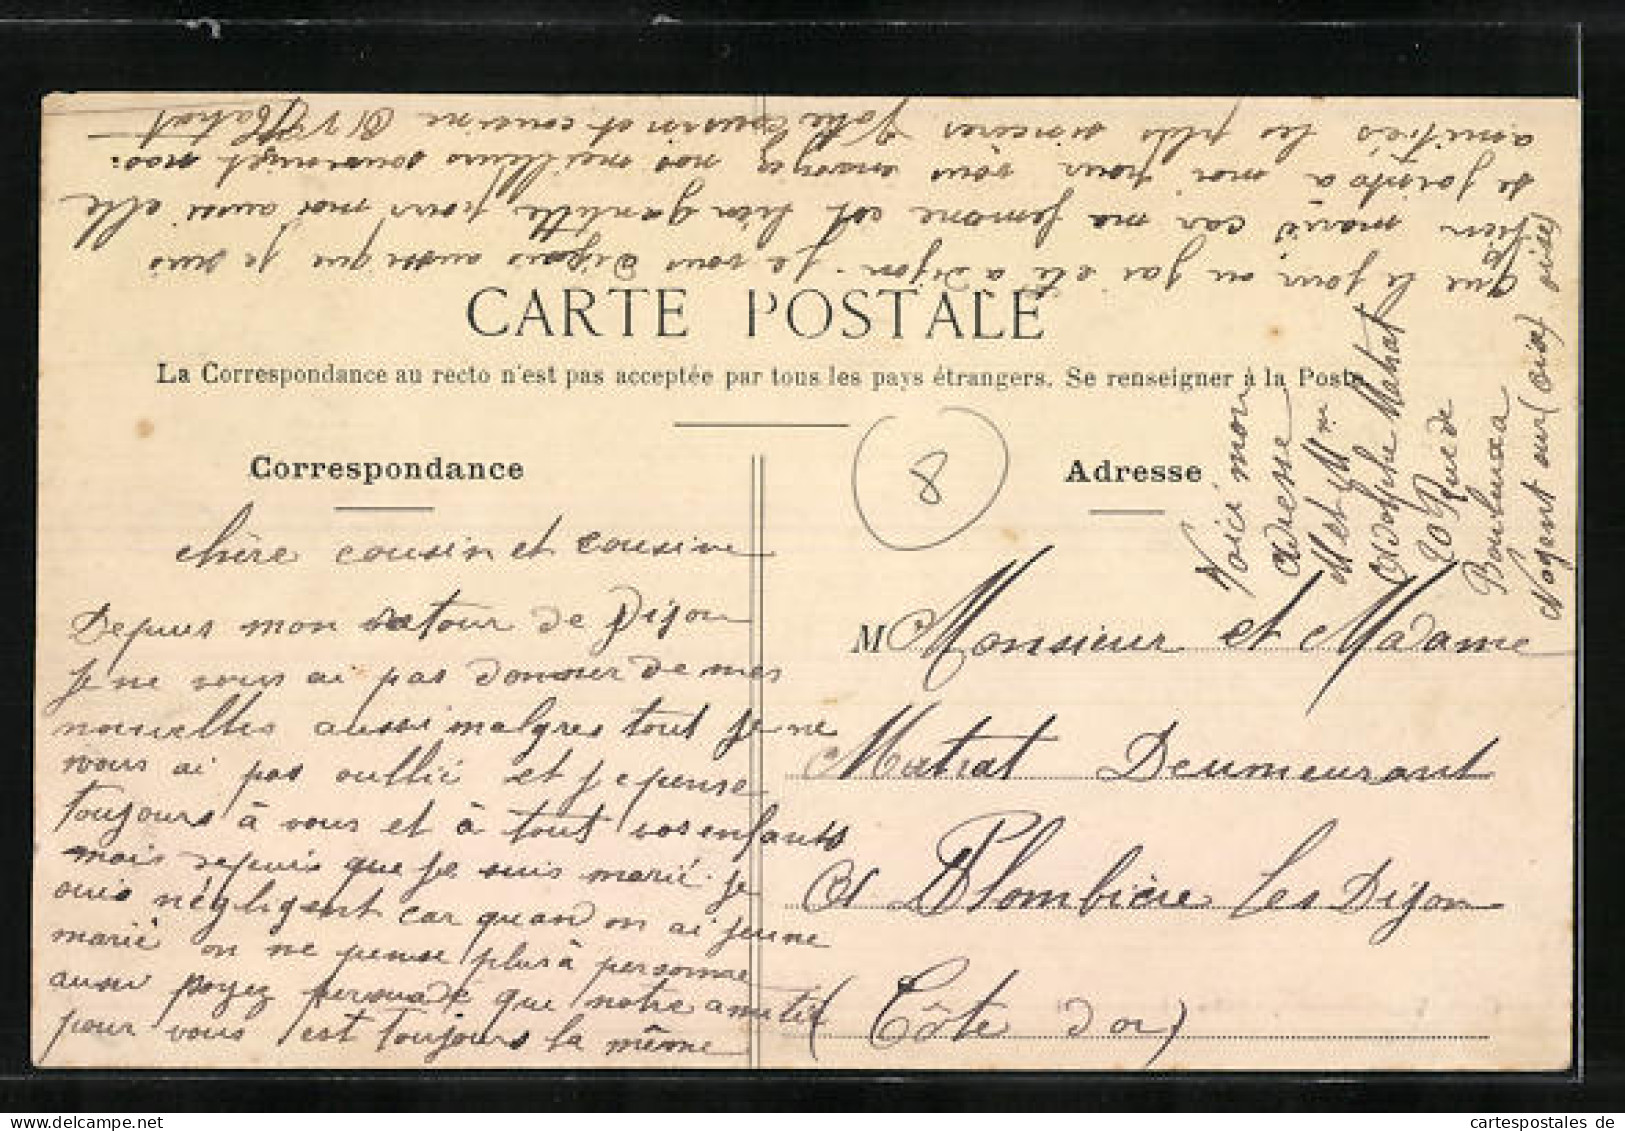 CARTE POSTALE
La Correspondance au recto n'est pas acceptée par tous les pays étrangers. Se renseigner à la Poste
Correspondance
chère cousin et cousine
Depuis mon retour de Dijon
je ne vous ai pas donner de mes
nouvelles aussi malgres tout je ne
vous ai pas oullié et je pense
toujours à vous et à tout vos enfants
mais depuis que je suis marié je
suis négligent car quand on ai jeune
marié on ne pense plus à personne
aussi soyez persuadé que notre amitié
pour vous est toujours la même
que le jour ou j'ai été a Dijon. je vous dirais aussi que je suis
bien marié car ma femme est bien gentille pour moi aussi elle
se joint a moi pour vous envoyer nos meilleurs souvenirs et nos
amitiés les plus sincères Votre cousin et cousine A V Matrat
8
Adresse
Voici mon
adresse
M et Mme
Adolphe Matrat
20 Rue de
Nogent sur (oise) oise
M Monsieur et Madame
Matrat Deumeurant
A Plombière Les Dijon
(Côte d'or)
cartespostales de